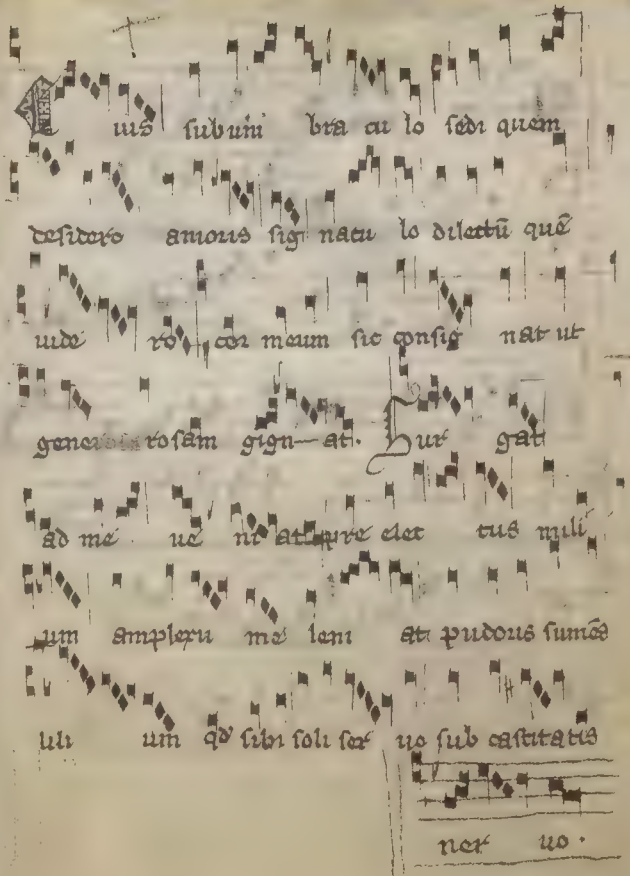 ius sub um bra cu lo sedi quem
desidero amoris sig nacu lo dilectū quē
uide ro cor meum sic consig nat ut
gene rosam gign at. Sur gat
ad me ue ni at pre elec tus mili
um amplexu me leni at pudoris sumēs
lili um qd sibi soli ser uo sub castitatis
ner uo.